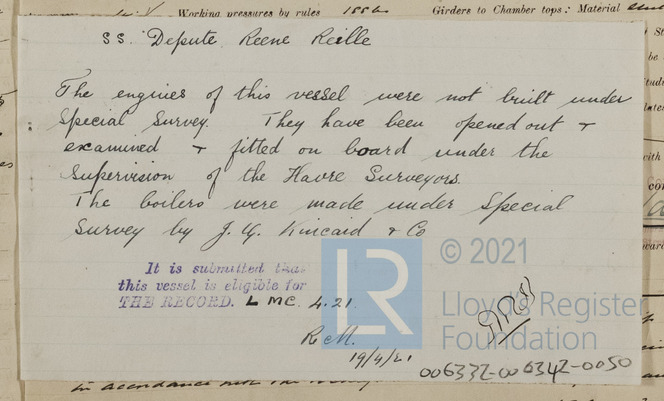 Working pressures by rules 188 Girders to Chamber tops: Material
SS. Depute Reene Reille
The engines of this vessel were not built under
Special Survey. They have been opened out +
examined + fitted on board under the
Supervision of the Havre Surveyors.
The boilers were made under Special
Survey by J. G. Kincaid & Co
It is submitted that
this vessel is eligible for
THE RECORD. L MC. 4.21.
19/4/21
LR
© 2021
Lloyd's Register
Foundation
006332-006342-0050
in accordance with the